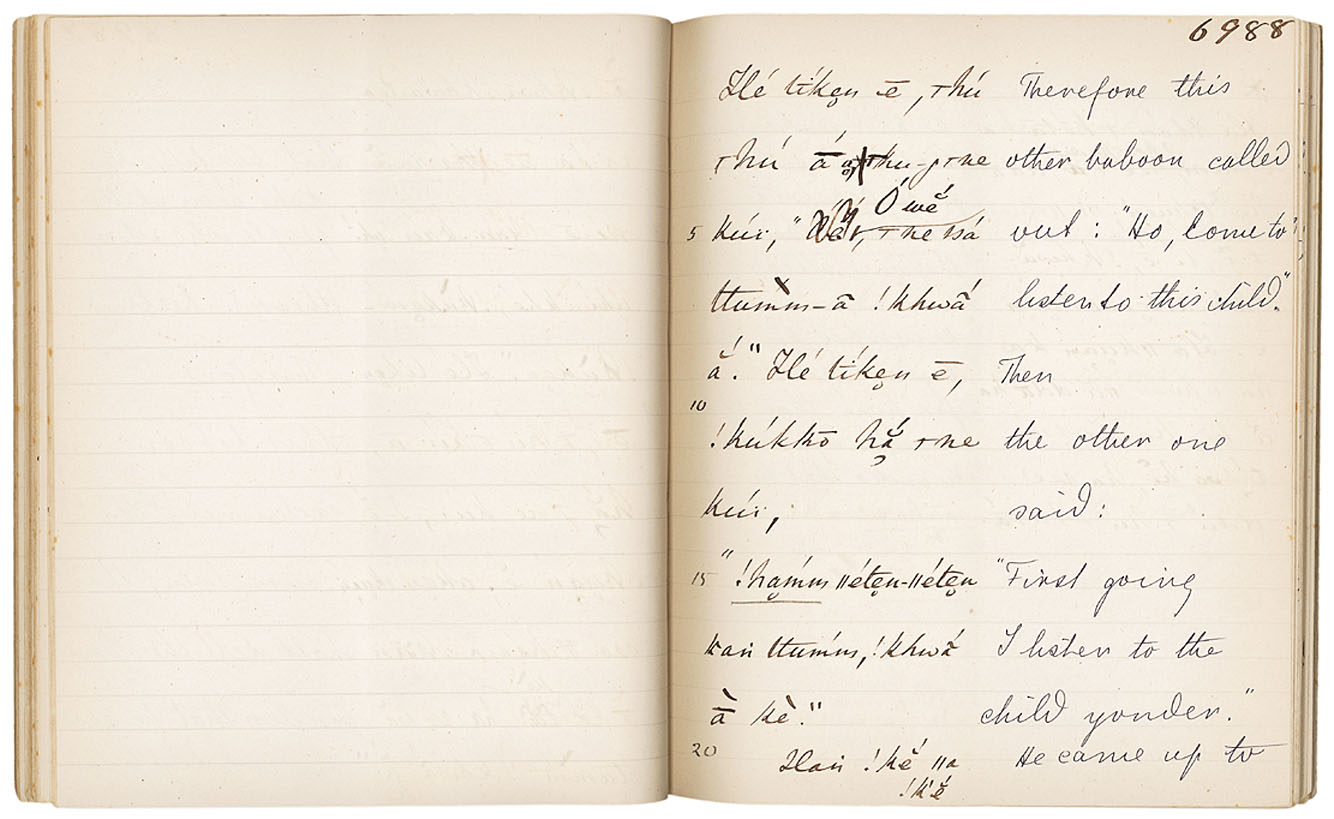 6988
Hé tíkẹn ē, ꞇhú Therefore this
ꞇhú ā́ ꞇhu-ꞇne other baboon called
5 kúi, " Ó wé̆ ꞇne ssá out: "Ho, come to
ttumm̀-ā !khwā́ listen to this child."
á̆." Hé tíkẹn ē, Then
10
!kúkkō hắ ꞇne the other one
kúi, said:
15 "!hạḿm ǁétẹn-ǁétẹn "First going
ttumḿ, !khwā́ I listen to the
ā̀ kè." child yonder."
20 Haṅ !ké̆ ǁa He came up to
!ké̆